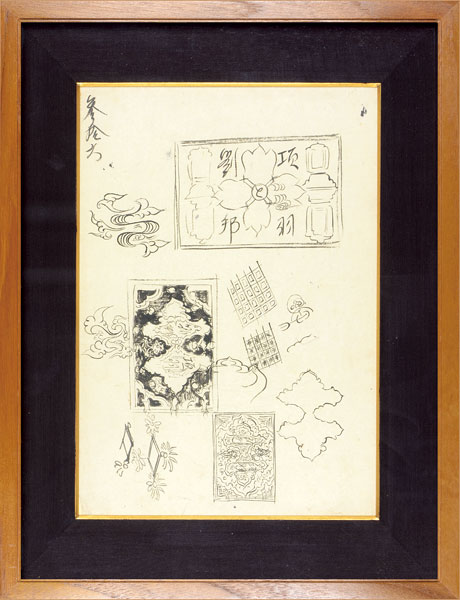 項羽
と
劉邦
参拾六